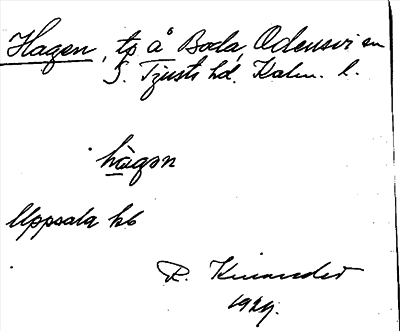 Hagen, tp å Boda, Odensvi sn
S. Tjusts hd. Kalm. l.
hàgən
Uppsala kb
R. Kinander
1929.